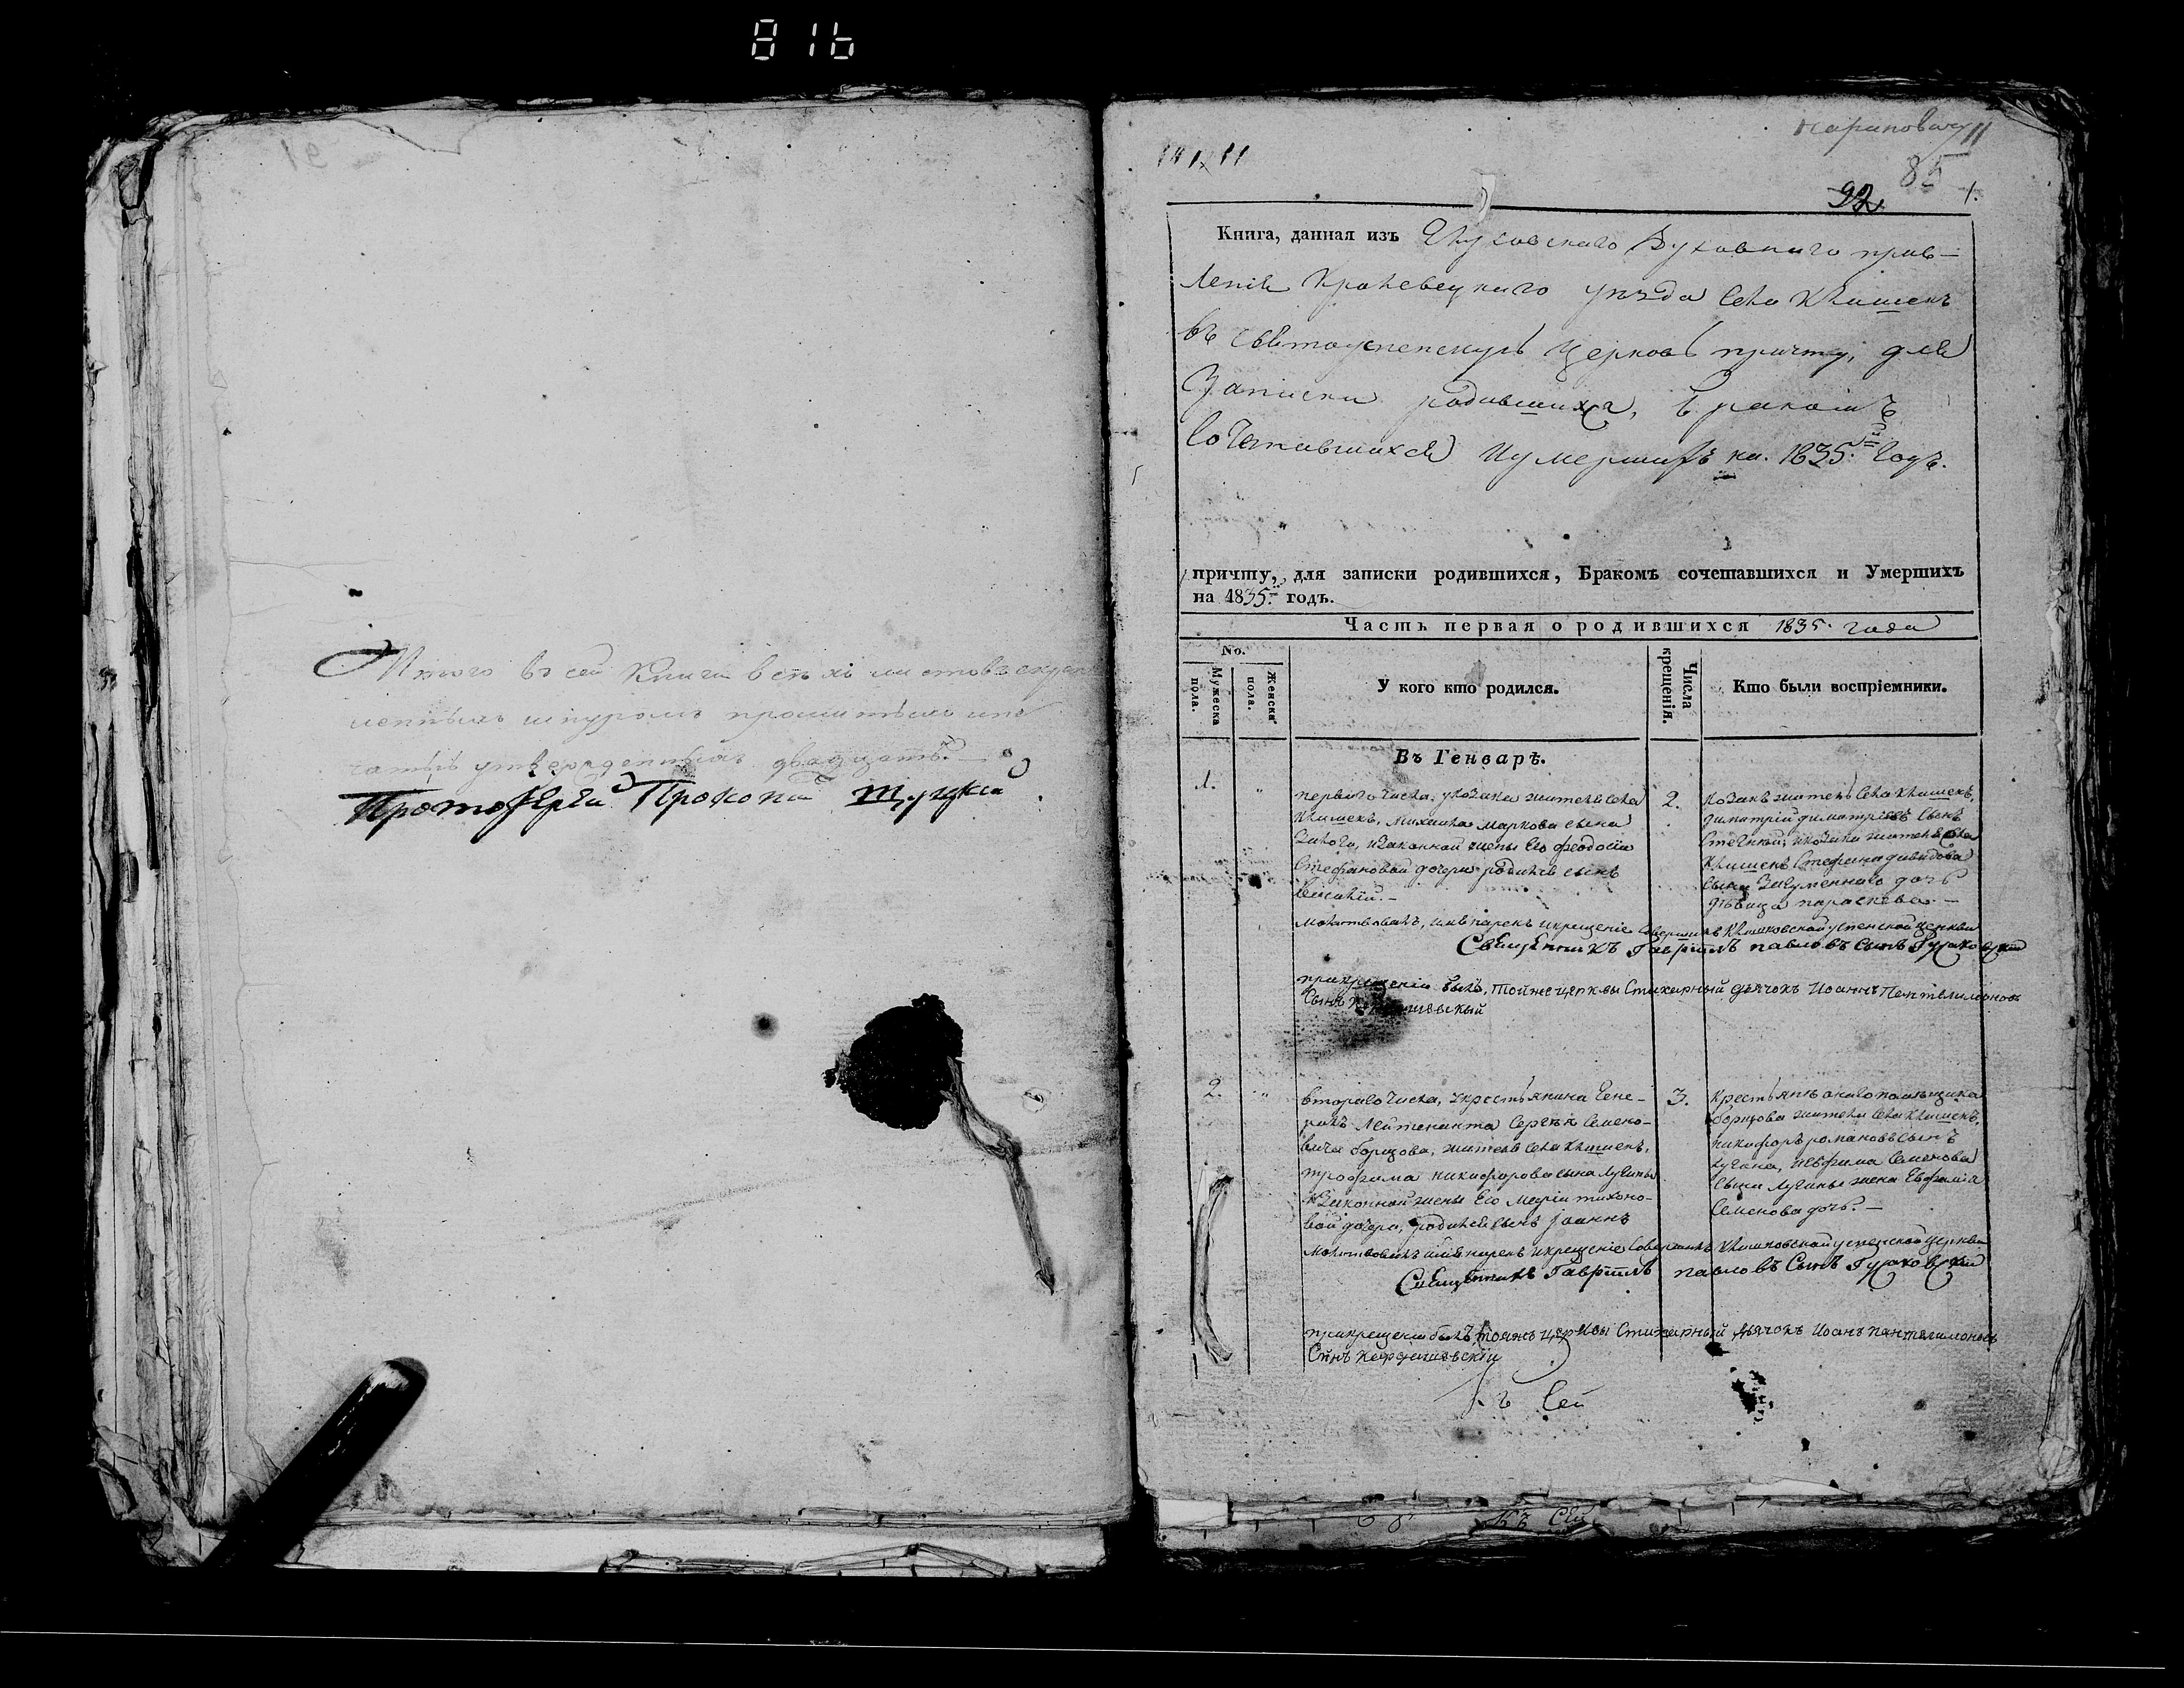 816
91
Итого въ сей книги всѣхъ листовъ скреп
леннымъ шнуромъ прошитыхъ и пе
чатью утвержденныхъ двадцать.
Протоіерей Прокопій
92
85
1.
Книга, данная изъ Глуховского Духовного прав-
ленія Кролевецкого уѣзда села Клишекъ
въ Святоуспенскую Церковь причту, для
Записки родившихся, Бракомъ
Сочетавшихся И умершихъ на 1835.й Годъ.
причту, для записки родившихся, Бракомъ сочетавшихся и Умершихъ
на 1835. годъ.
Часть первая о родившихся 1835. года
No.
Мужеска пола.
Женска пола.
У кого кто родился.
Числа крещенія.
Кто были воспріемники.
Въ Генварѣ.
1.
"
первого числа, у козака жителя села
Клишекъ, Михаила Маркова сына
и законной жены его Феодосіи
Стефановой дочери родился сынъ
Василій. -
2.
Козакъ житель села Клишекъ,
Димитрій Димитріевъ сынъ
козака жителя села
Клишекъ Стефана Давидова
сына дочь
дѣвица Параскева. -
молитвовалъ, имя нарекъ и крещеніе совершилъ Клишковской успенской церкви
Священникъ Гавріилъ Павловъ Сынъ
при крещеніи былъ, той же церкви Стихарный дьячокъ Иоаннъ Пантелимоновъ
Сынъ
2.
"
второго числа, у крестьянина Гене-
ралъ Лейтенанта Сергѣя Семено-
вича Борщова, жителя села Клишекъ,
Трофима Никифорова сына Лугины
и законной жены Его Маріи Тихоно-
вой дочери, родился сынъ Іоаннъ
3.
Крестьянъ оного помѣщика
Борщова житель села Клишекъ,
Никифоръ Романовъ сынъ
и Ефима Семенова
сына Лугины жена Евфимія
Семенова дочь. -
Молитвовалъ имя нарекъ и крещеніе Совершилъ Клишковской успенской церкви
Священникъ Гавріилъ Павловъ Сынъ
при крещеніи былъ тояжъ церкви Стихарный дьячокъ Иоанъ Пантелимоновъ
Сынъ
Къ Сей
Къ Сей